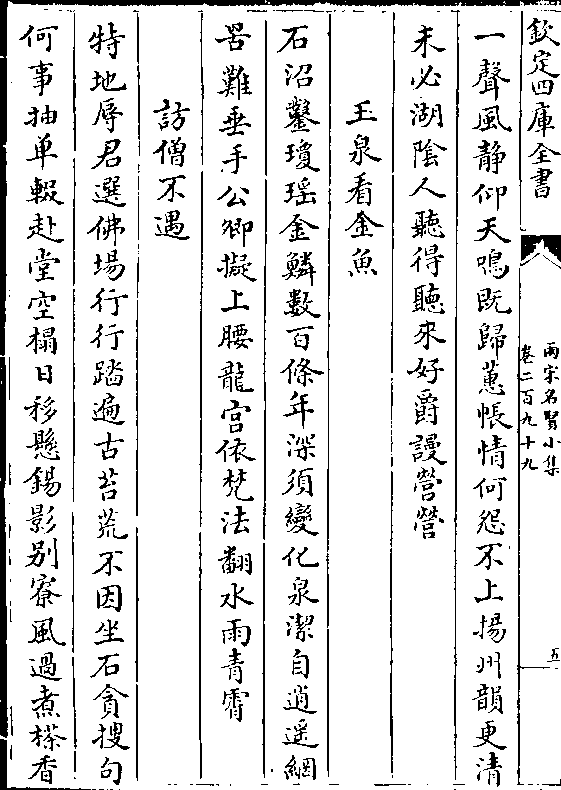 欽定四庫全書
兩宋名賢小集
卷二百九十九
五
一聲風静仰天鳴既歸蕙帳情何怨不上揚州韻更清
未必湖陰人聽得聽來好爵謾營營
玉泉看金魚
石沼鑿瓊瑶金鱗數百條年深須變化泉潔自逍遥網
罟難垂手公卿擬上腰龍宫依梵法翻水雨青霄
訪僧不遇
特地辱君選佛場行行踏遍古苔荒不因坐石貪搜句
何事抽单輟赴堂空榻日移懸錫影别寮風過煮樣香